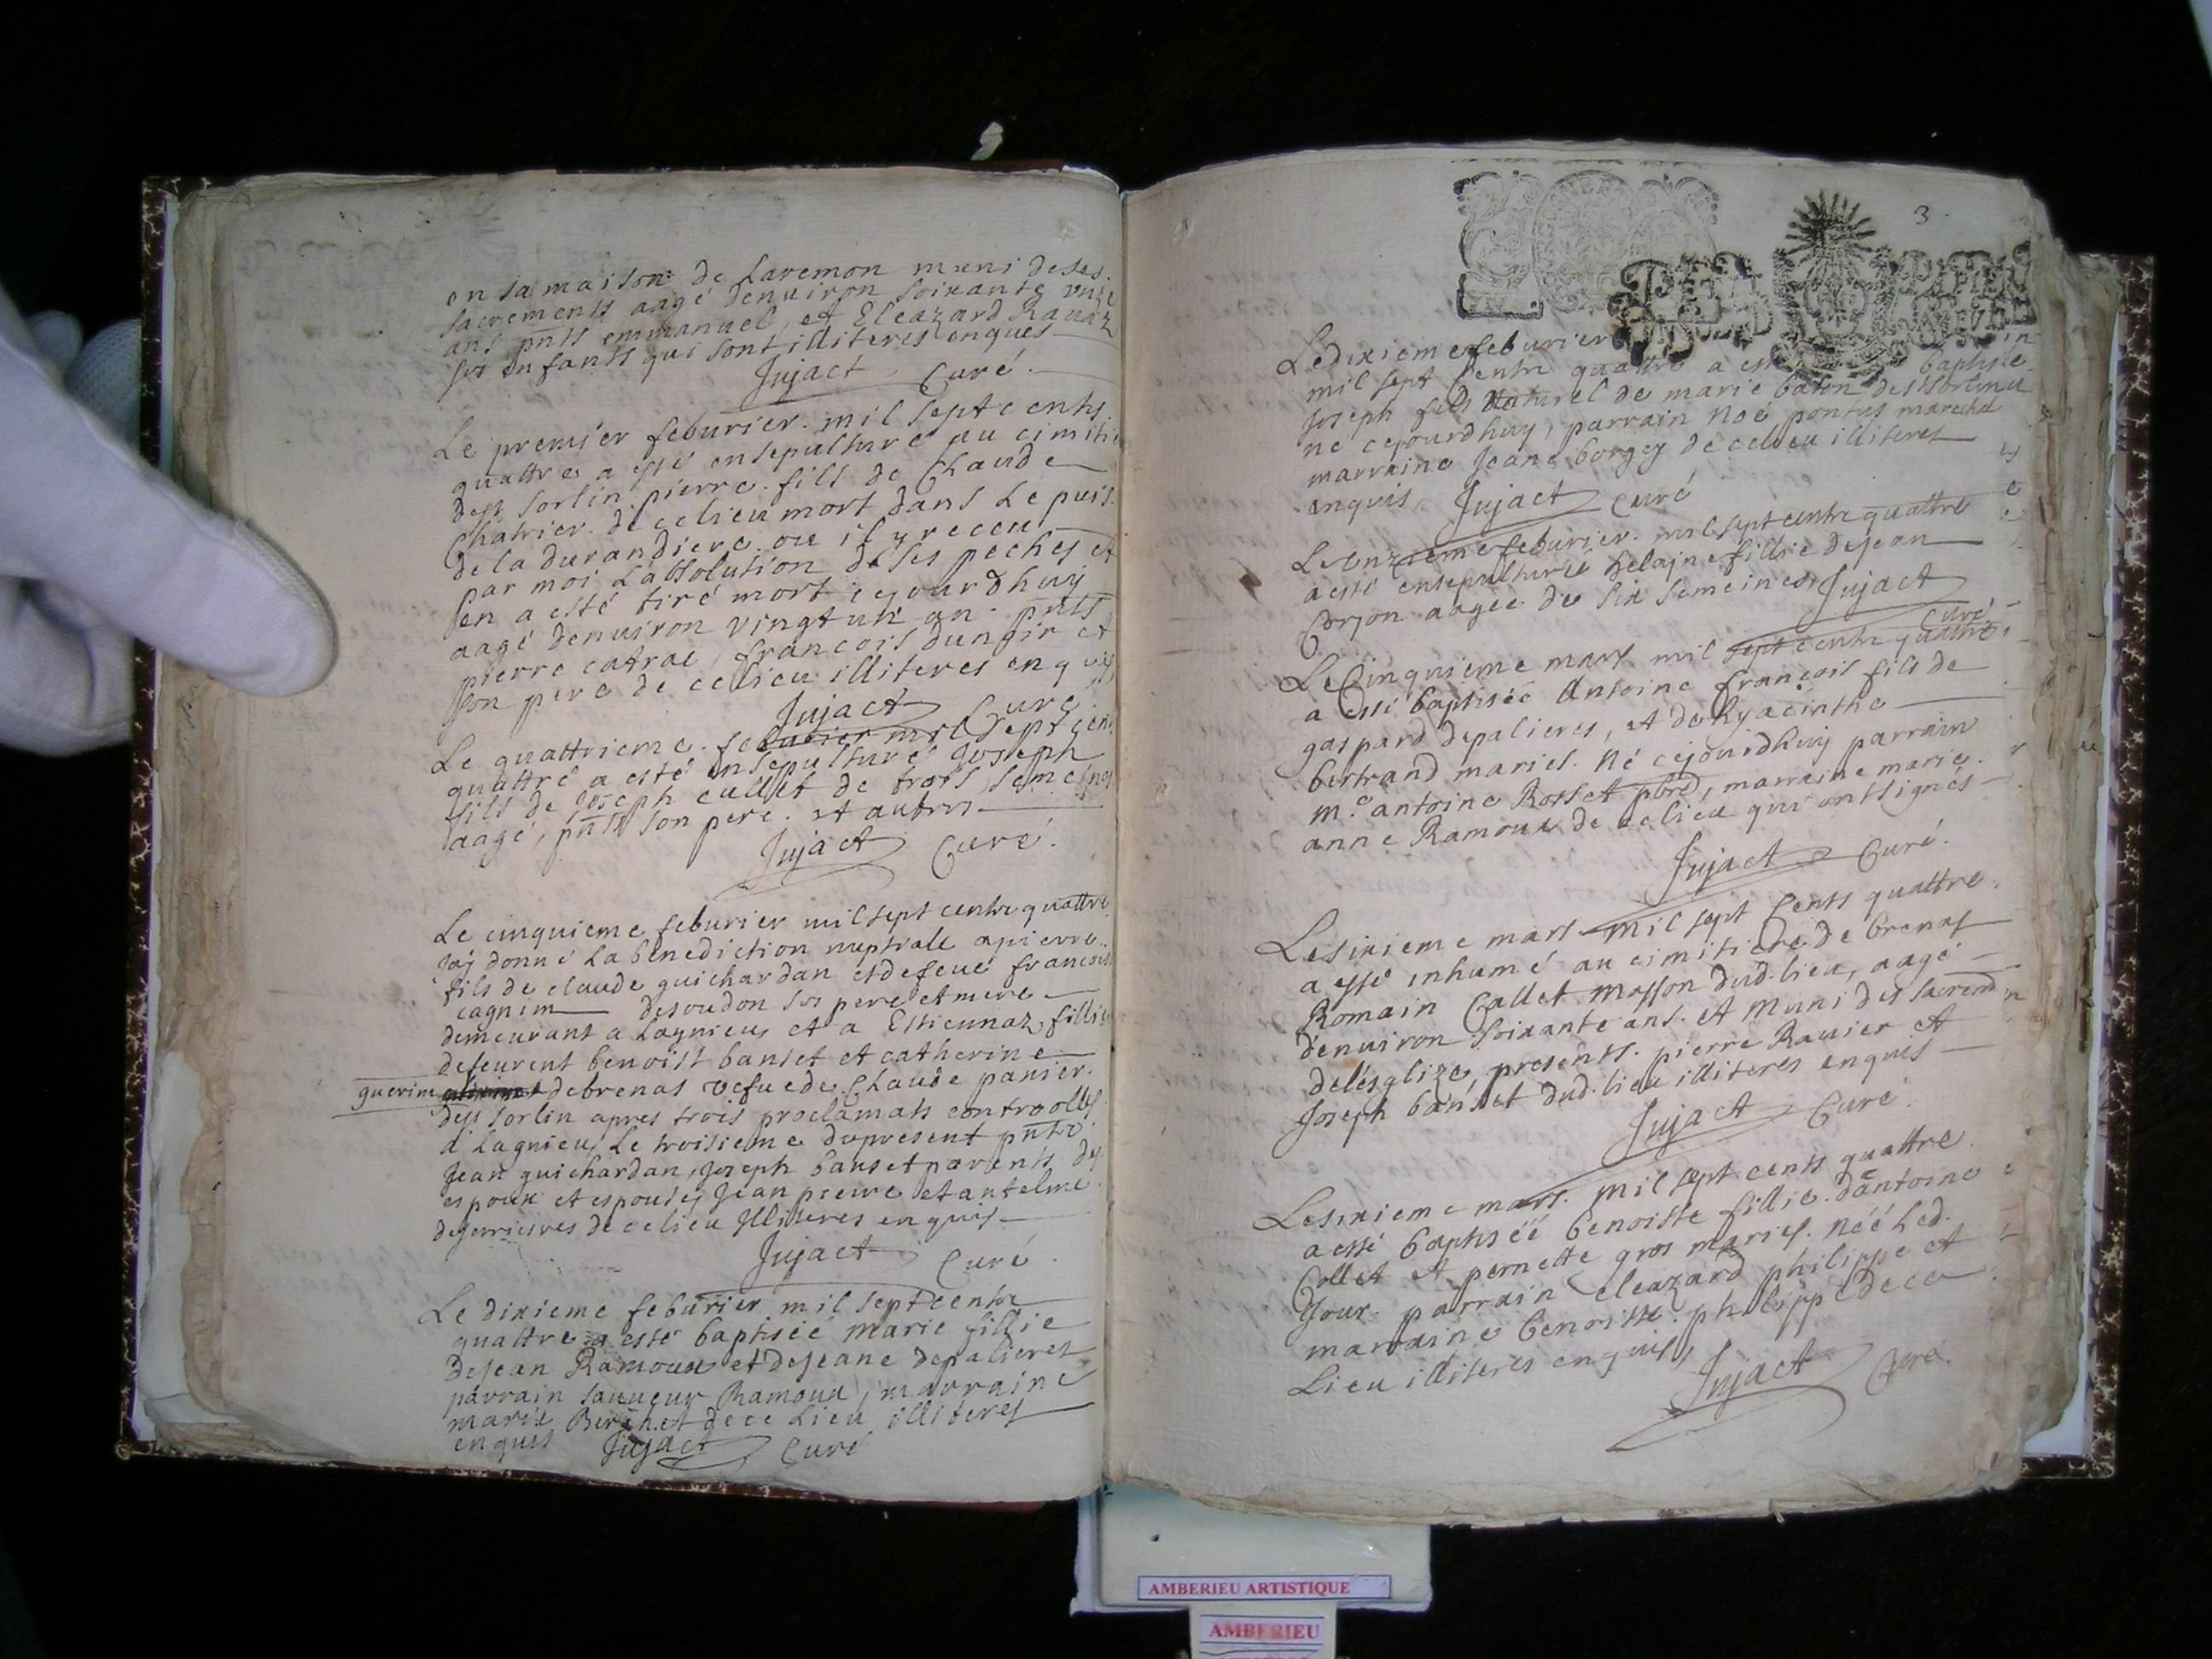 en sa maison de Lavemon muni deses
sacrements aagé denuiron soixante unze
ans pnts emmanuel, et Eleazard Rauaz
ses enfants qui sont illiteres enques
Jujact Curé.
Le premier feburier. mil sept cents
quattre a esté ensepulturé au cimitie
dess sorlin pierre. fils de Claude
Chatrier. de celieu mort dans Le puis.
dela durandiere ou il y receu
par moi L'absolution de ses peches et
en a esté tiré mort cejourdhuy
aagé denuiron vingt un an. pnts
pierre catrae, francois dungir et
son pere de celieu illiteres enquis
Jujact Curé
Le quattrieme. feburier mil sept cen
quattre a esté ensepulturé Joseph
fils de Joseph cullet de trois semeines
aagé, pnts son pere. et autres
Jujact Curé.
Le cinquieme feburier mil sept cents quattre
jay donné La benediction nuptiale a pierre
fils de claude guichardan et defeue francois
cagnim desoudon ses pere et mere
demeurant a Lagnieu, et a Estiennaz fillie
defeurent benoist banset et catherine
guerin debrenas vefue de Claude panier.
dess sorlin apres trois proclamats controolles
a Lagnieu Le troisieme dupresent pnts
Jean guichardan, Joseph banset parents des
espoux et espouses Jean pierre et antelme
deferrieres de celieu Illiteres enquis
Jujact Curé.
Le dixieme feburier mil sept cents
quattre a esté baptiséé marie fillie
deJean Ramoux et deJeane depalieres
parrain sauueur Ramoux, marraine
marie Berthet dece Lieu illiteres
enques Jujact Curé
3.
Ledixieme feburier
mil sept Cents quattre a esté baptisé
Joseph fils Naturel de marie baton dess sorlin
né cejourdhuy, parrain Noé pontus marechal
marraine Jeane borgey de celieu illiteres
enquis Jujact Curé
Leonzieme feburier. mil sept cents quattre
a esté ensepulturéé helaine fillie deJean
Corjon aagée de six semeines Jujact
Curé
Le Cinquieme mars mil sept cents quattre
a esté baptiséé Antoine françois fils de
gaspard depalieres, et de hyacinthe
bertrand mariés. Né cejourdhuy parrain
m.e antoine Rosset pbre, marraine marie
anne Ramoux de celieu qui ont signés
Jujact Curé.
Lesixieme mars mil sept Cents quattre.
a esté inhumé au cimitiere de brenas
Romain Callet masson dud. lieu, aagé
denuiron soixante ans. et muni des sacrem
delésglize, presents. pierre Rauier et
Joseph banset dud. lieu illiteres enquis
Jujact Curé.
Lesixieme mars. mil sept cents quattre
a esté baptiséé benoiste fillie. dantoine
Collet et pernette gros mariés. Néé Led.
Jour. parrain eleazard philippe et
marraine benoiste. philippe de ce
Lieu illiteres enquis,
Jujact Curé.
AMBERIEU ARTISTIQUE
AMBERIEU